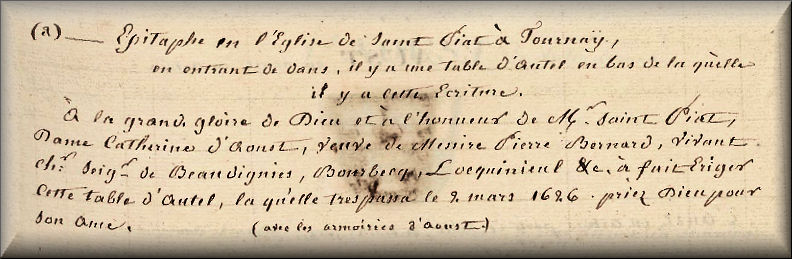 (a) — Epitaphe en l'Eglise de Saint Piat à Tournaÿ,
en entrant de dans, il y a une table d'Autel en bas de la quelle
il y a cette Ecriture.
À la grande gloire de Dieu et à l'honneur de Mr. Saint Piat,
Dame Catherine d'Aoust, veuve de Messire Pierre Bernard, vivant
chr. Seigr. de Beaudignies, Bourbecq, Locquinieul &c. à fait Eriger
Cette table d'Autel, la quelle trespassa le 2 mars 1626. priez Dieu pour
Son Ame. (avec les armoiries d'Aoust.)